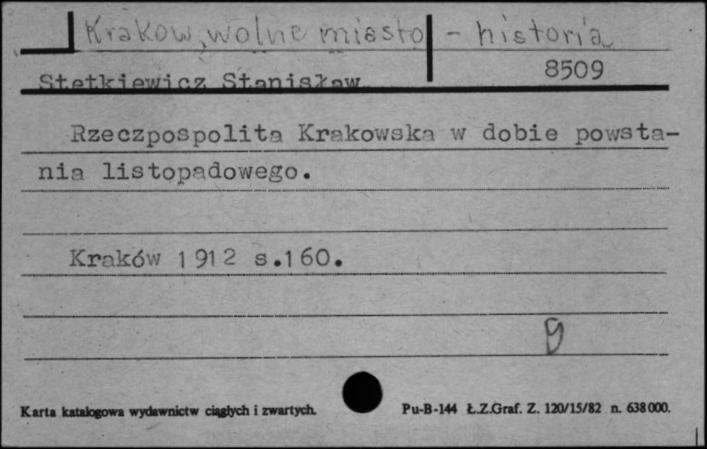 Krakow, wolne miasto - historia
8509
Stetkiewicz Stanisław
Rzeczpospolita Krakowska w dobie powsta-
nia listopadowego.
Kraków 1912 s.160.
Karta katalogowa wydawnictw ciągłych i zwartych.
Pu-B-144 Ł.Z.Graf. Z. 120/15/82 n. 638000.